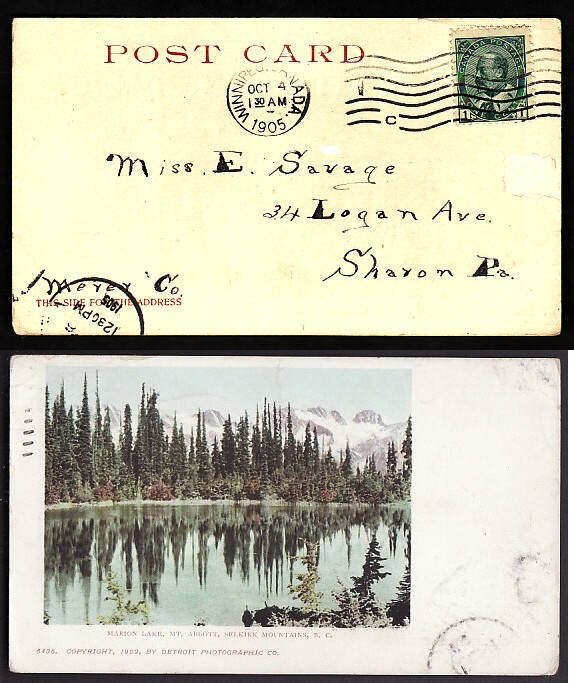 POST CARD
WINNIPEG, CANADA.
OCT 4
1 30 AM
1905
C
CANADA POSTAGE
1 1
Miss. E. Savage
34 Logan Ave.
Sharon Pa.
Mercer Co.
THIS SIDE FOR THE ADDRESS
12 30 PM
1905
MARION LAKE, MT. ABBOTT, SELKIRK MOUNTAINS, B. C.
6435. COPYRIGHT, 1902, BY DETROIT PHOTOGRAPHIC CO.